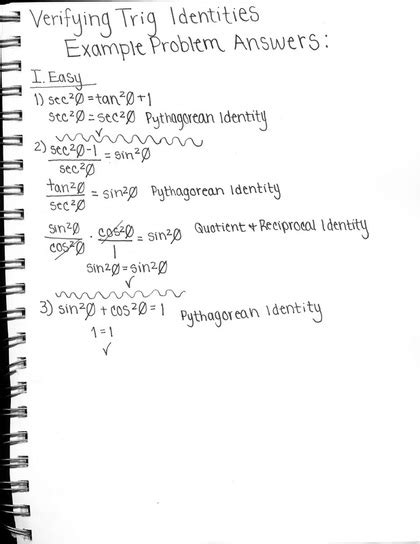 Verifying Trig Identities
Example Problem Answers:
I. Easy
1) sec²Ø = tan²Ø + 1
sec²Ø = sec²Ø Pythagorean Identity
✓
2) sec²Ø - 1 / sec²Ø = sin²Ø
tan²Ø / sec²Ø = sin²Ø Pythagorean Identity
sin²Ø / cos²Ø · cos²Ø / 1 = sin²Ø Quotient + Reciprocal Identity
sin²Ø = sin²Ø
✓
3) sin²Ø + cos²Ø = 1 Pythagorean Identity
1 = 1
✓